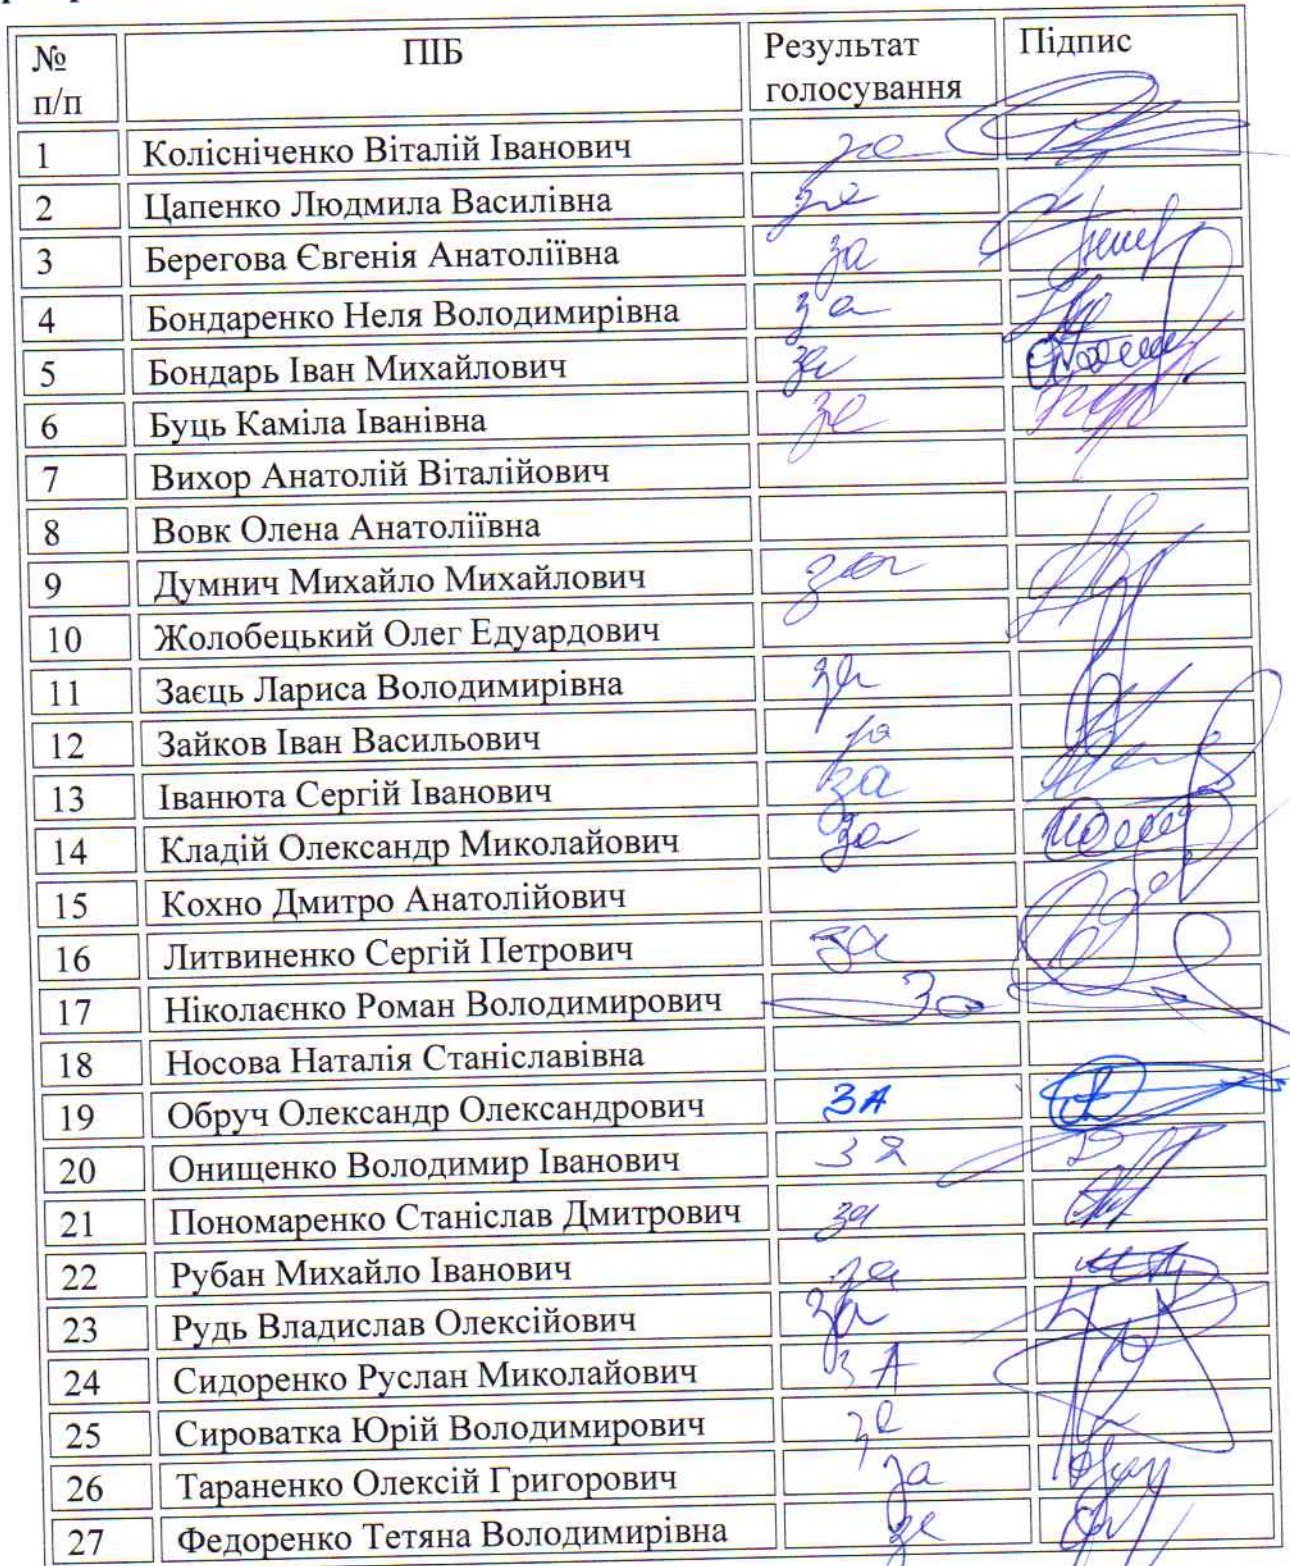 № п/п ПІБ Результат голосування Підпис
1 Колісніченко Віталій Іванович за
2 Цапенко Людмила Василівна за
3 Берегова Євгенія Анатоліївна за
4 Бондаренко Неля Володимирівна за
5 Бондарь Іван Михайлович за
6 Буць Каміла Іванівна за
7 Вихор Анатолій Віталійович
8 Вовк Олена Анатоліївна
9 Думнич Михайло Михайлович за
10 Жолобецький Олег Едуардович
11 Заєць Лариса Володимирівна за
12 Зайков Іван Васильович за
13 Іванюта Сергій Іванович за
14 Кладій Олександр Миколайович за
15 Кохно Дмитро Анатолійович
16 Литвиненко Сергій Петрович за
17 Ніколаєнко Роман Володимирович За
18 Носова Наталія Станіславівна
19 Обруч Олександр Олександрович ЗА
20 Онищенко Володимир Іванович за
21 Пономаренко Станіслав Дмитрович за
22 Рубан Михайло Іванович за
23 Рудь Владислав Олексійович за
24 Сидоренко Руслан Миколайович ЗА
25 Сироватка Юрій Володимирович за
26 Тараненко Олексій Григорович за
27 Федоренко Тетяна Володимирівна за